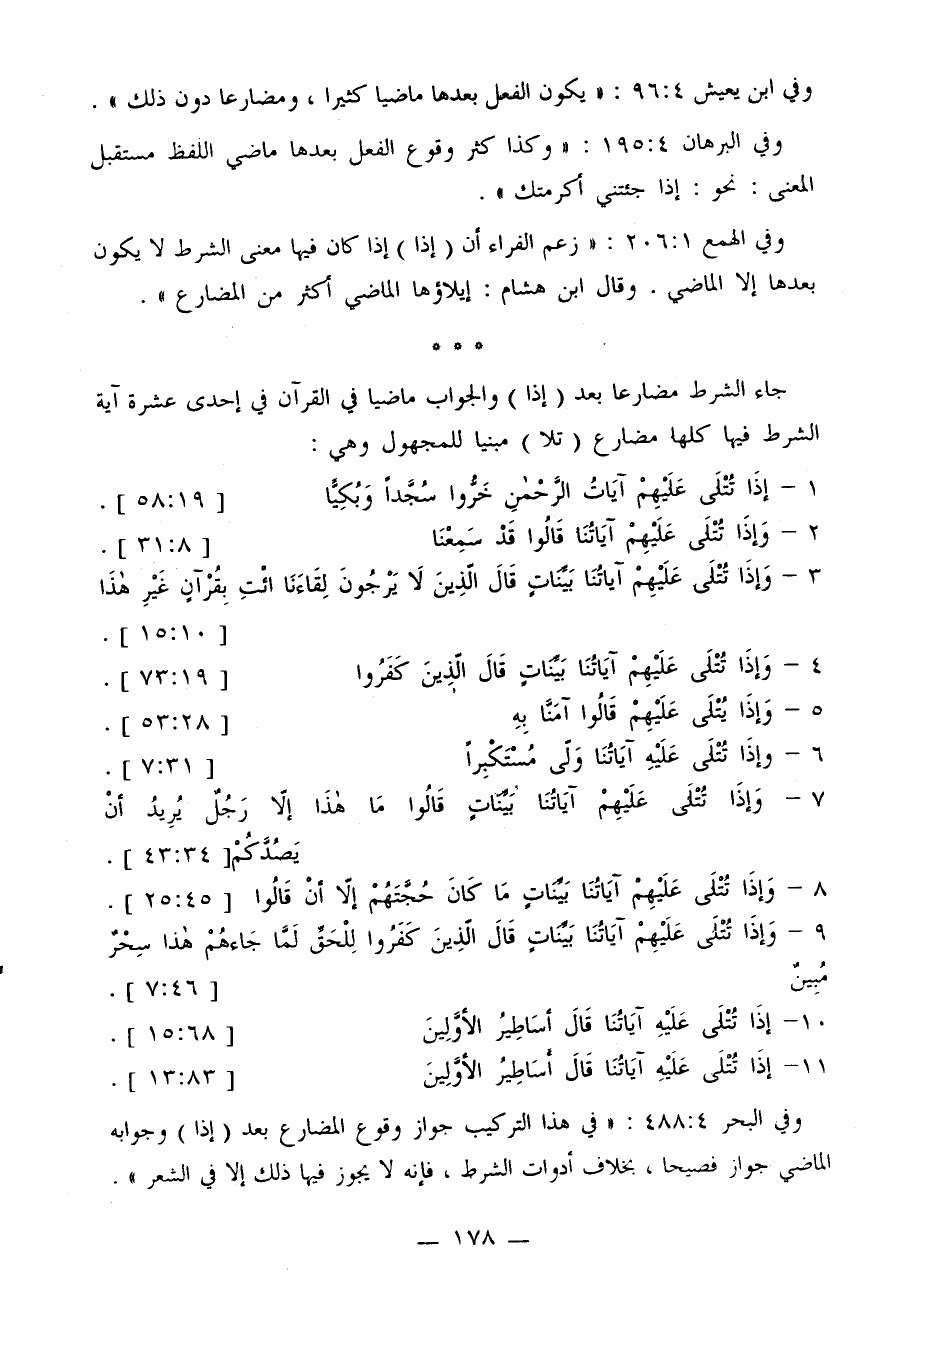 وفي ابن يعيش ٩٦:٤ : « يكون الفعل بعدها ماضيا كثيرا ، ومضارعا دون ذلك » .
وفي البرهان ١٩٥:٤ : « وكذا كثر وقوع الفعل بعدها ماضي اللفظ مستقبل
المعنى : نحو : إذا جئتني أكرمتك » .
وفي الهمع ٢٠٦:١ : « زعم الفراء أن ( إذا ) إذا كان فيها معنى الشرط لا يكون
بعدها إلا الماضي . وقال ابن هشام : إيلاؤها الماضي أكثر من المضارع » .
* * *
جاء الشرط مضارعا بعد ( إذا ) والجواب ماضيا في القرآن في إحدى عشرة آية
الشرط فيها كلها مضارع ( تلا ) مبنيا للمجهول وهي :
١ – إِذَا تُتْلَى عَلَيْهِمْ آيَاتُ الرَّحْمٰنِ خَرُّوا سُجَّداً وَبُكِيًّا [ ٥٨:١٩ ] .
٢ – وَإِذَا تُتْلَى عَلَيْهِمْ آيَاتُنَا قَالُوا قَدْ سَمِعْنَا [ ٣١:٨ ] .
٣ – وَإِذَا تُتْلَى عَلَيْهِمْ آياتُنَا بَيِّنَاتٍ قَالَ الَّذِينَ لَا يَرْجُونَ لِقَاءَنَا ائْتِ بِقُرْآنٍ غَيْرِ هٰذَا
[ ١٥:١٠ ] .
٤ – وَإِذَا تُتْلَى عَلَيْهِمْ آيَاتُنَا بَيِّنَاتٍ قَالَ الَّذِينَ كَفَرُوا [ ٧٣:١٩ ] .
٥ – وَإِذَا يُتْلَى عَلَيْهِمْ قَالُوا آمَنَّا بِهِ [ ٥٣:٢٨ ] .
٦ – وإِذَا تُتْلَى عَلَيْهِ آيَاتُنَا وَلَّى مُسْتَكْبِراً [ ٧:٣١ ] .
٧ – وَإِذَا تُتْلَى عَلَيْهِمْ آيَاتُنَا بَيِّنَاتٍ قَالُوا مَا هٰذَا إِلَّا رَجُلٌ يُرِيدُ أنْ
يَصُدَّكُمْ [ ٤٣:٣٤ ] .
٨ – وَإِذَا تُتْلَى عَلَيْهِمْ آيَاتُنَا بَيِّنَاتٍ مَا كَانَ حُجَّتَهُمْ إِلَّا أنْ قَالُوا [ ٢٥:٤٥ ] .
٩ – وَإِذَا تُتْلَى عَلَيْهِمْ آيَاتُنَا بَيِّنَاتٍ قَالَ الَّذِينَ كَفَرُوا لِلْحَقِّ لَمَّا جَاءهُمْ هٰذا سِحْرٌ
مُبِينٌ [ ٧:٤٦ ] .
١٠– إِذَا تُتْلَى عَلَيْهِ آيَاتُنَا قَالَ أسَاطِيرُ الأوَّلِينَ [ ١٥:٦٨ ] .
١١– إِذَا تُتْلَى عَلَيْهِ آيَاتُنَا قَالَ أَسَاطِيرُ الأوَّلِينَ [ ١٣:٨٣ ] .
وفي البحر ٤٨٨:٤ : « في هذا التركيب جواز وقوع المضارع بعد ( إذا ) وجوابه
الماضي جواز فصيحا ، بخلاف أدوات الشرط ، فإنه لا يجوز فيها ذلك إلا في الشعر » .
— ١٧٨ —